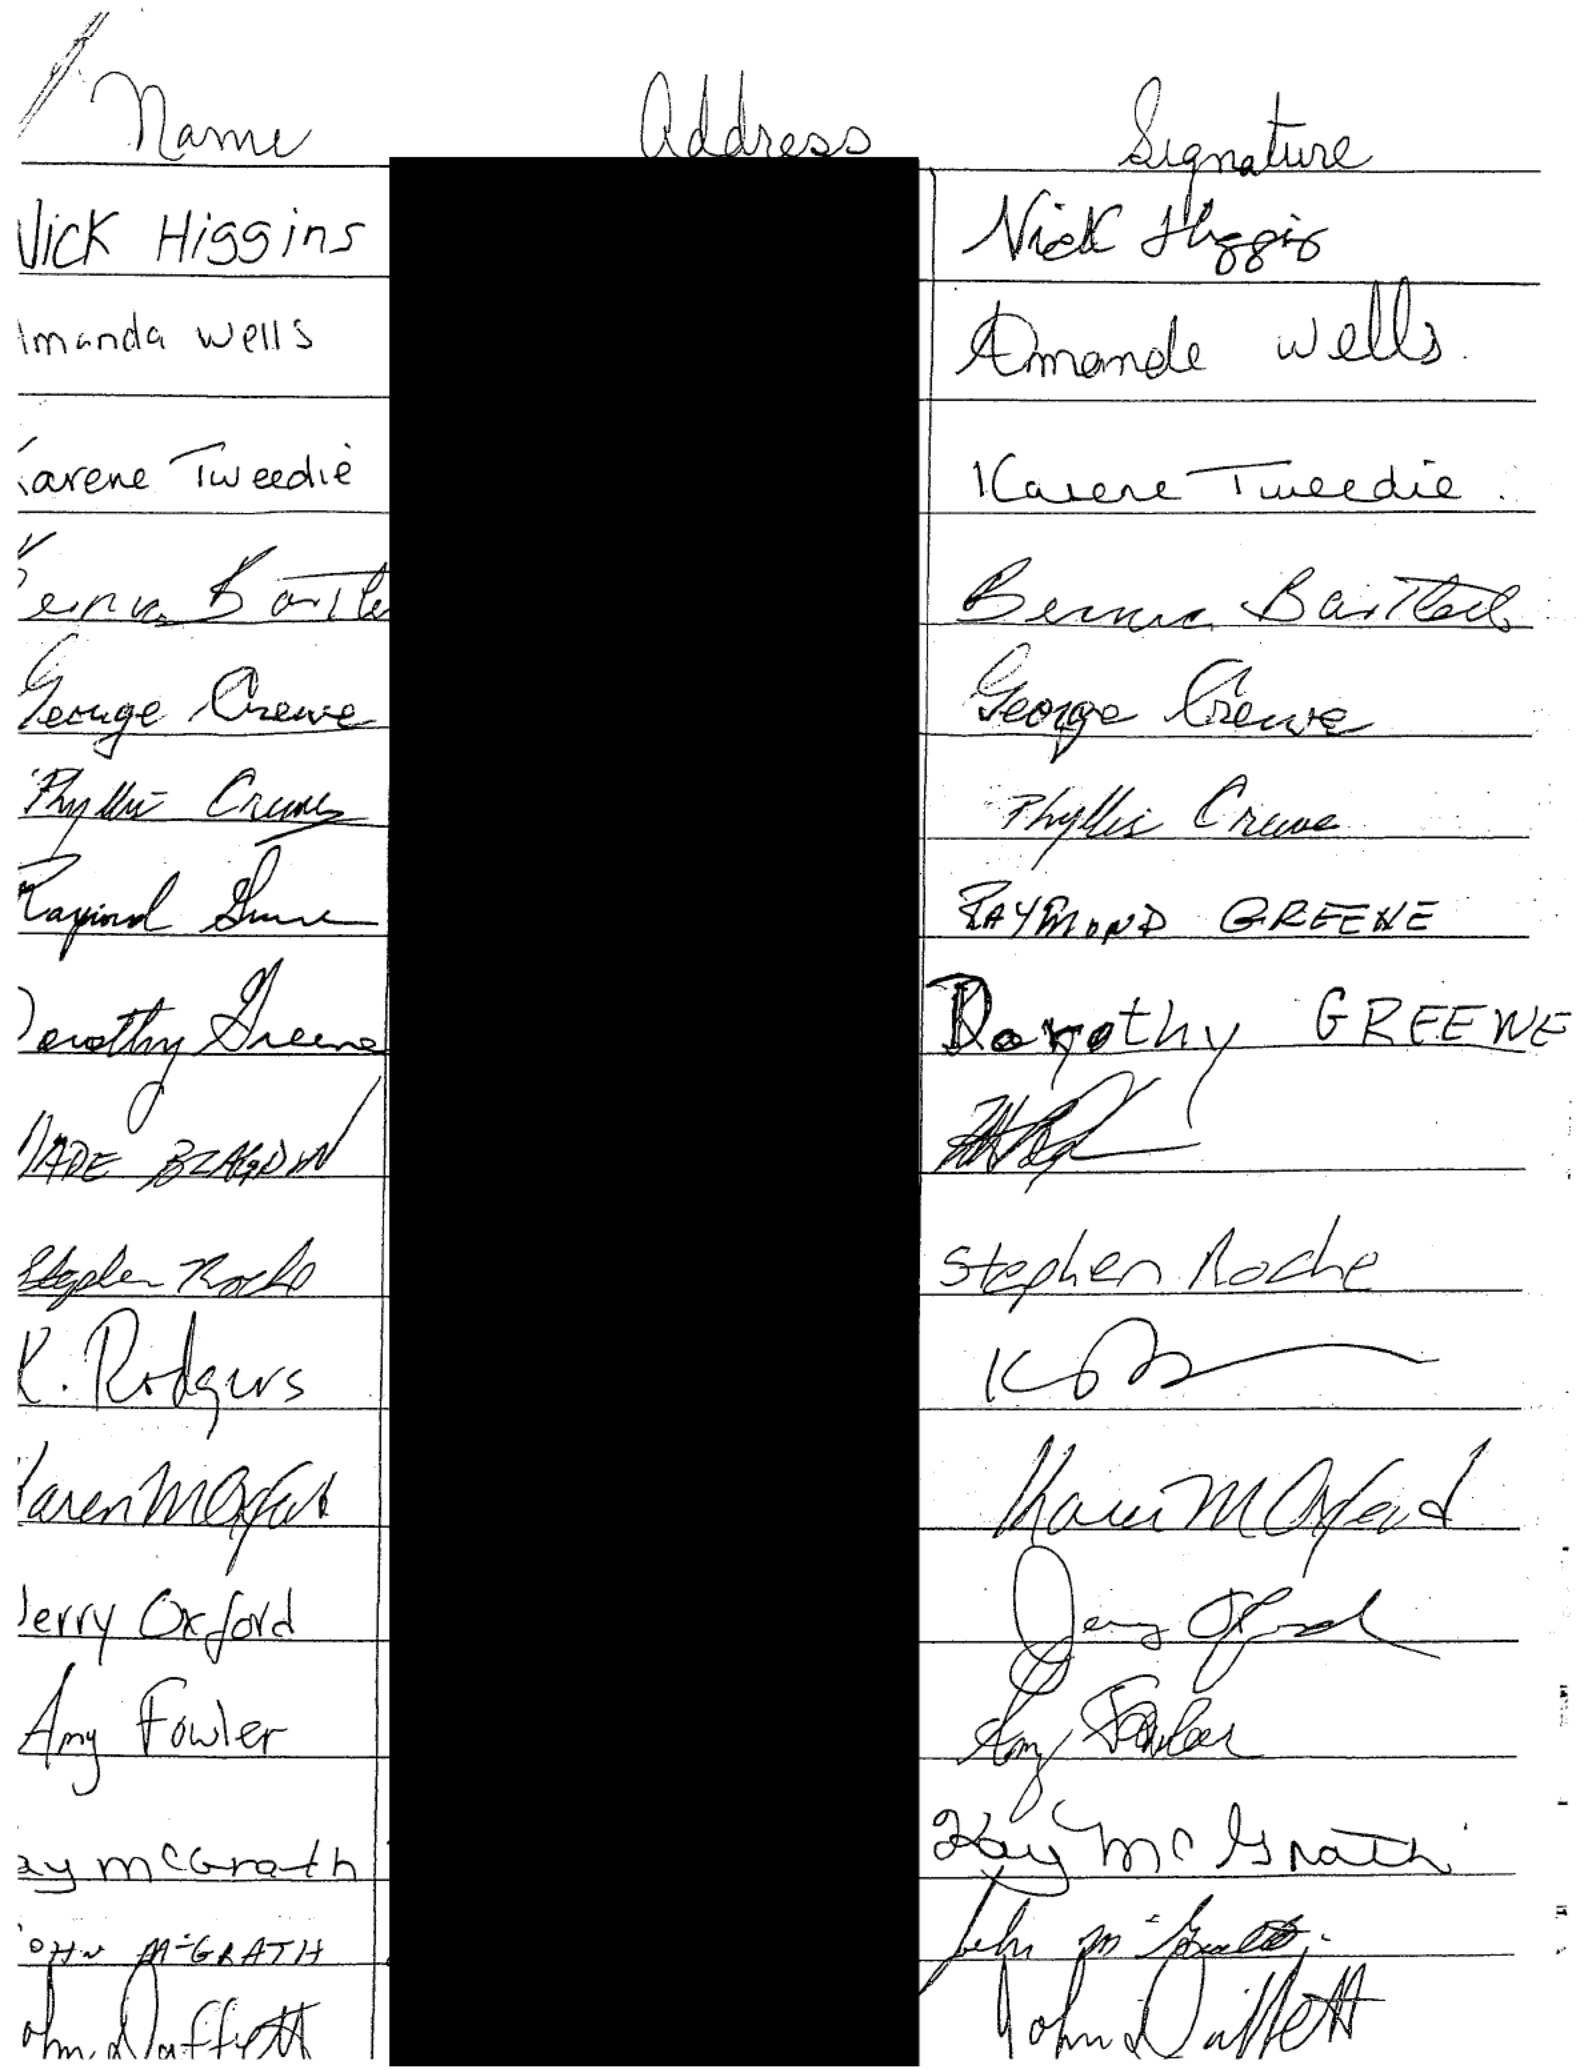 Name Address Signature
Nick Higgins Nick Higgins
Amanda Wells Amanda Wells.
Karene Tweedie Karene Tweedie.
Bartlett
George Crewe George Crewe
Phyllis Crewe Phyllis Crewe
Raymond Greene RAYMOND GREENE
Dorothy Greene Dorothy GREENE
WADE BLAGDON
Stephen Roche Stephen Roche
K. Rodgers K
Karen M Oxford Karen M Oxford
Jerry Oxford Jerry Oxford
Amy Fowler Amy Fowler
Kay McGrath Kay McGrath
JOHN McGRATH John McGrath
John Daffett